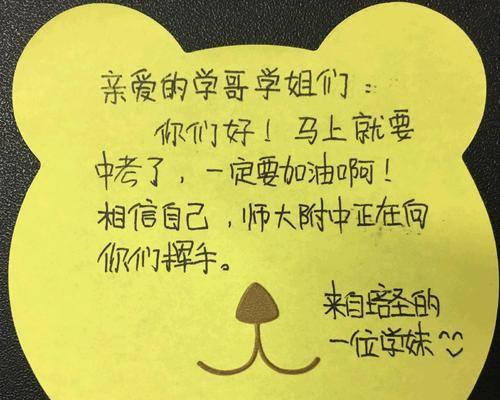 亲爱的学哥学姐们：
你们好！马上就要
中考了，一定要加油啊！
相信自己，师大附中正在向
你们挥手。
来自培圣的
一位学妹